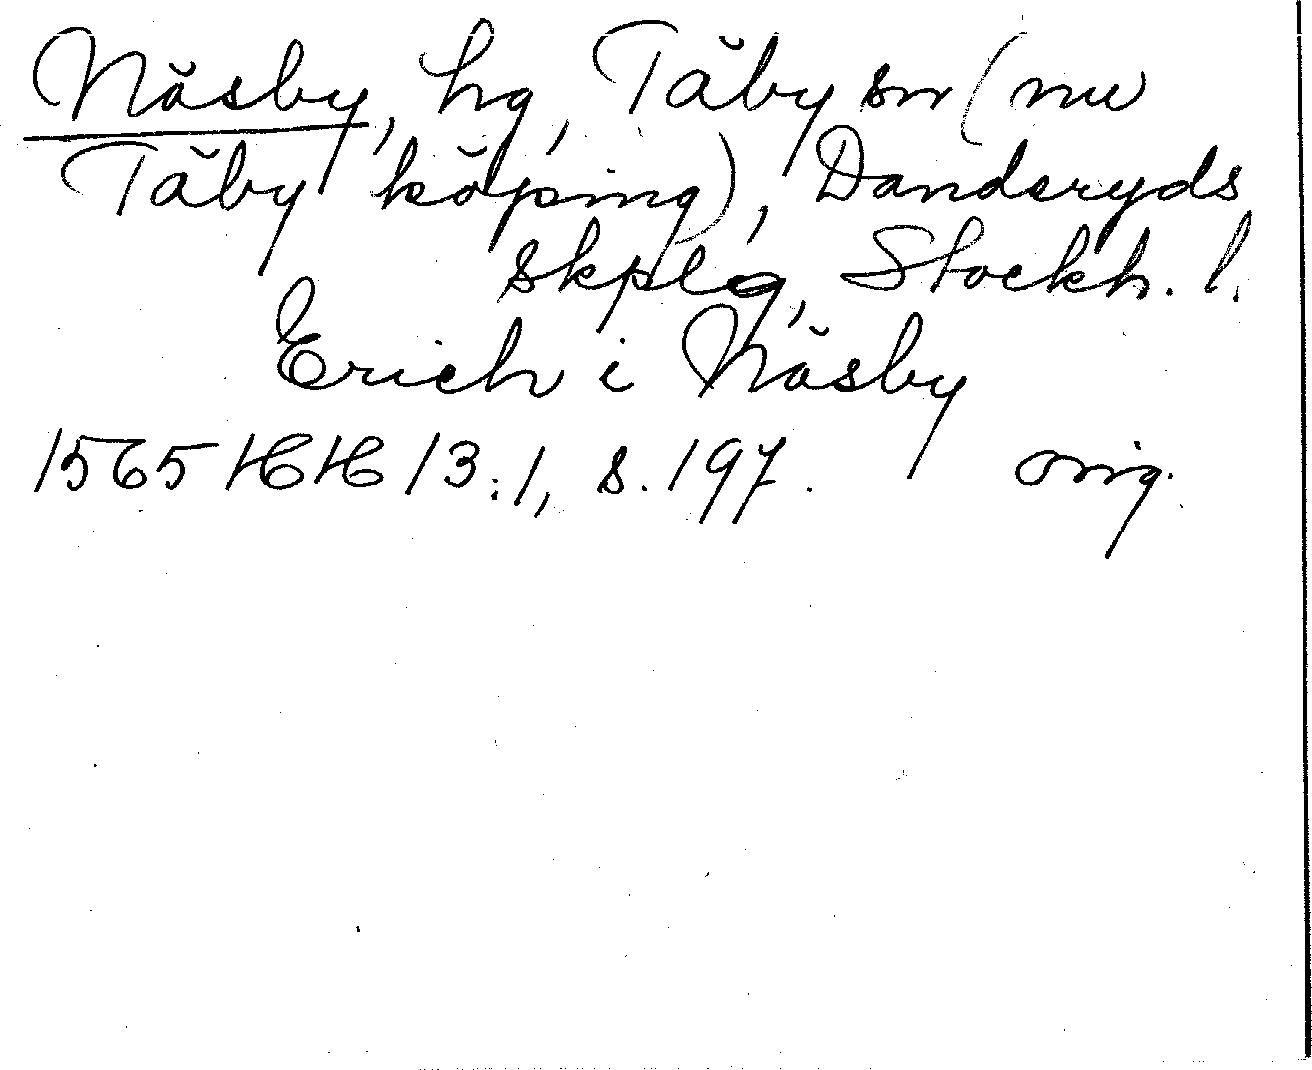 Näsby, hg, Täby sn (nu
Täby köping), Danderyds
skplg, Stockh. l.
Erich i Näsby
1565 HH 13:1, s. 197. orig.